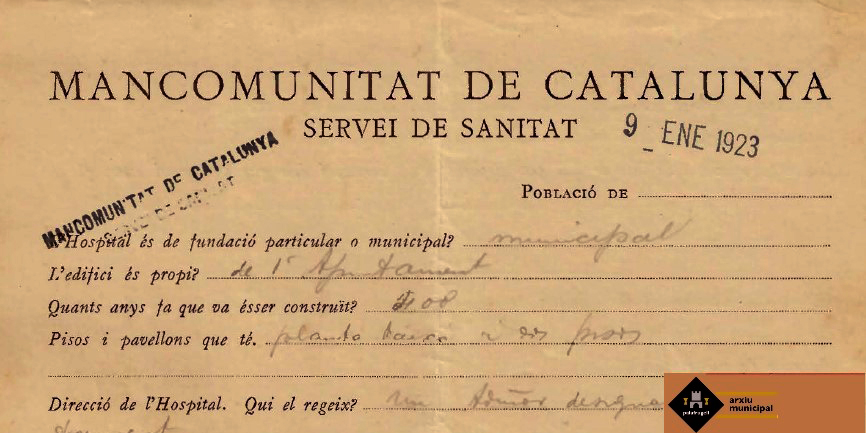 MANCOMUNITAT DE CATALUNYA
SERVEI DE SANITAT
9 ENE 1923
MANCOMUNITAT DE CATALUNYA
SERVEI DE SANITAT
POBLACIÓ DE
L'Hospital és de fundació particular o municipal? municipal
L'edifici és propi? de l'
Quants anys fa que va ésser construït?
Pisos i pavellons que té. planta baixa i dos pisos
Direcció de l'Hospital. Qui el regeix? un
palafrugell
arxiu
municipal